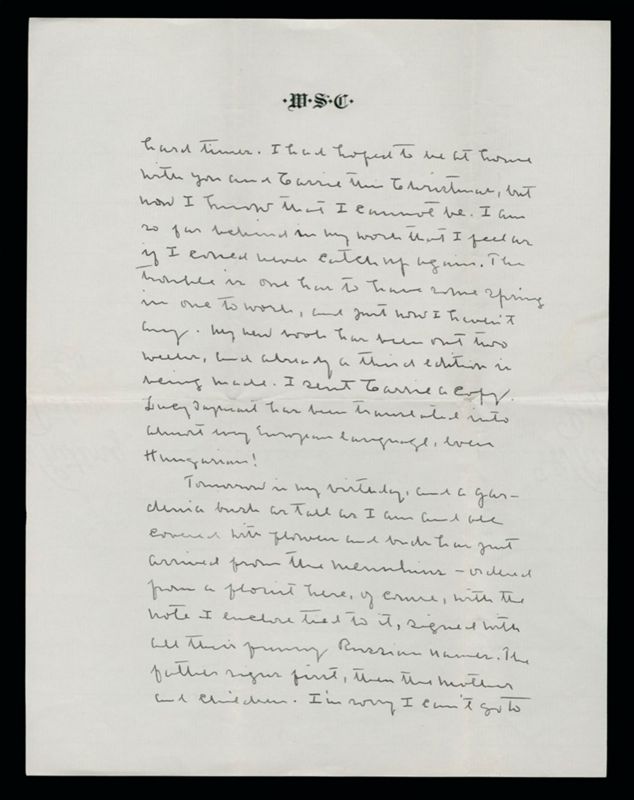 ·W·S·C·
hard times. I had hoped to be at home
with you and Carrie this Christmas, but
now I know that I cannot be. I am
so far behind in my work that I feel as
if I could never catch up again. The
trouble is one has to have some spring
in one to work, and just now I haven't
any. My new book has been out two
weeks, and already a third edition is
being made. I sent Carrie a copy.
Lucy Gayheart has been translated into
almost every European language, even
Hungarian!
Tomorrow is my birthday, and a gar-
denia bush as tall as I am and all
covered with flowers and buds has just
arrived from the Menuhins - ordered
from a florist here, of course, with the
note I enclose tied to it, signed with
all their funny Russian names. The
father signs first, then the mother
and children. I'm sorry I can't go to